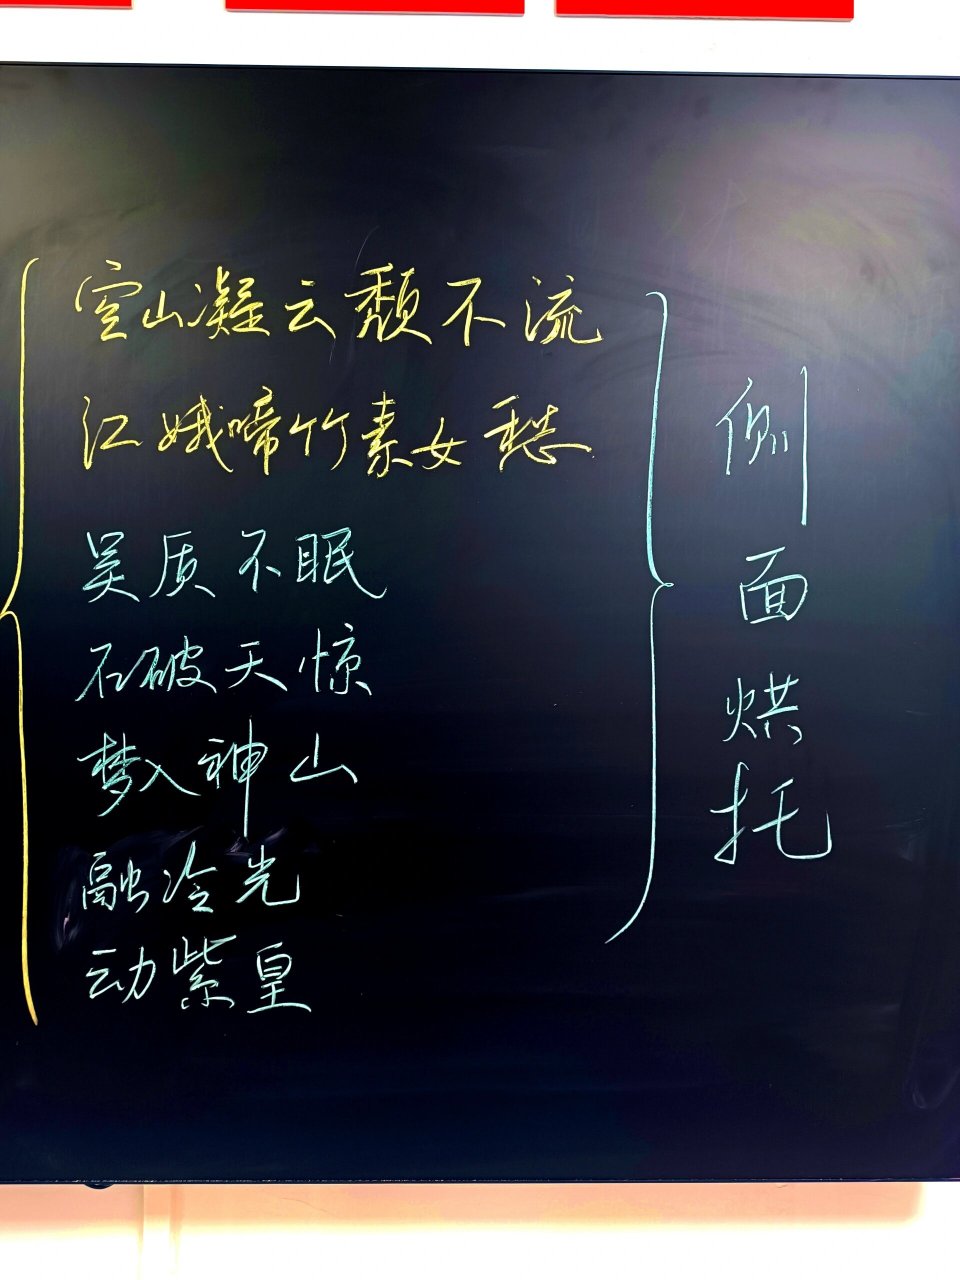 空山凝云颓不流
江娥啼竹素女愁
吴质不眠
石破天惊
梦入神山
融冷光
动紫皇
侧面烘托